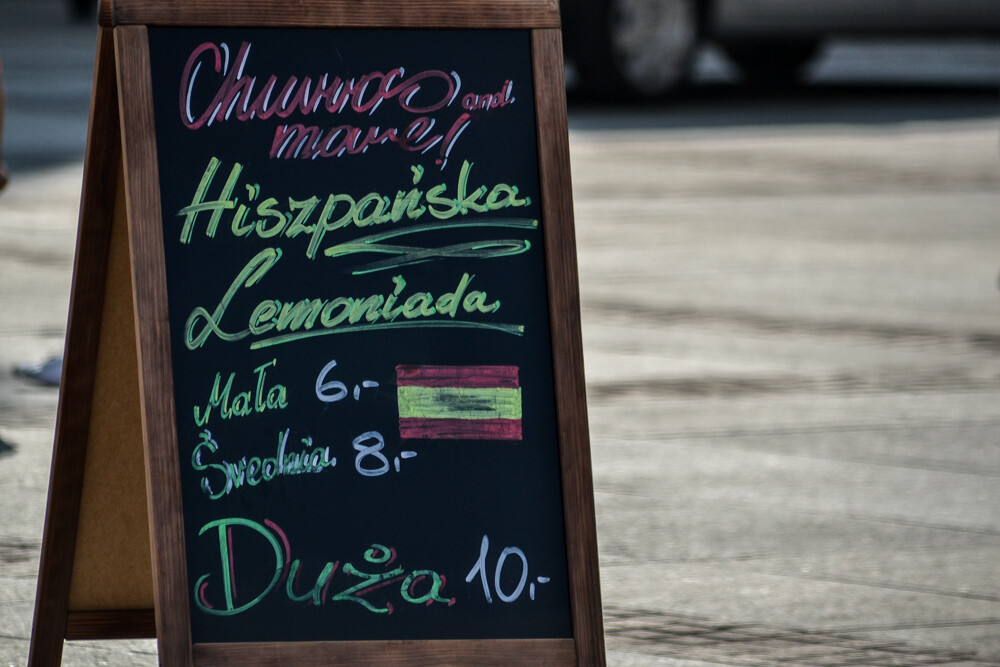 Churros and
more!
Hiszpańska
Lemoniada
Mała 6,-
Średnia 8,-
Duża 10,-